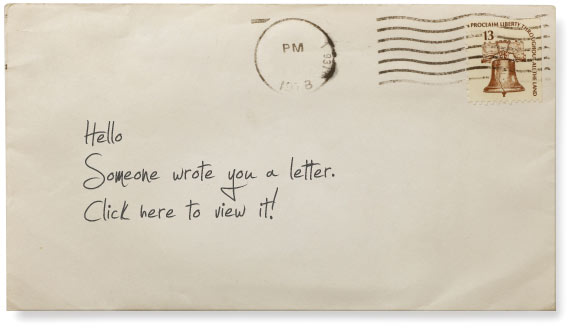 PM
PROCLAIM LIBERTY THROUGHOUT ALL THE LAND
13
Hello
Someone wrote you a letter.
Click here to view it!